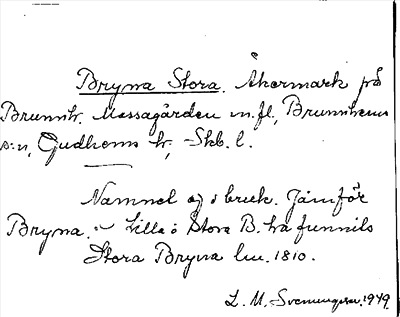 Bryna Stora. Åkermark på
Brunnh. Mossagården m. fl., Brunnhems
s:n, Gudhems hd, Skb. l.
Namnet ej i bruk. Jämför
Bryna. Lilla o Stora B. ha funnits
Stora Bryna lm. 1810.
L. M. Svenungsson. 1949.